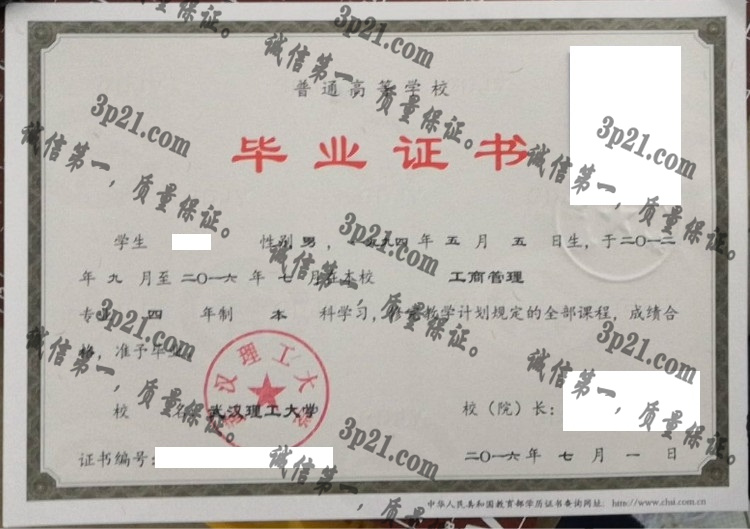 普通高等学校
毕业证书
学生 性别 男，一九九四年五月五日生，于二〇一二
年九月至二〇一六年七月在本校 工商管理
专业 四 年制 本 科学习，修完教学计划规定的全部课程，成绩合
格，准予毕业。
校 名：武汉理工大学
校（院）长：
证书编号：
二〇一六年七月一日
中华人民共和国教育部学历证书查询网址：http://www.chsi.com.cn
武汉理工大学
3p21.com
诚信第一，质量保证。
3p21.com
诚信第一，质量保证。
3p21.com
诚信第一，质量保证。
3p21.com
诚信第一，质量保证。
3p21.com
诚信第一，质量保证。
3p21.com
诚信第一，质量保证。
3p21.com
诚信第一，质量保证。
诚信第一，质量保证。